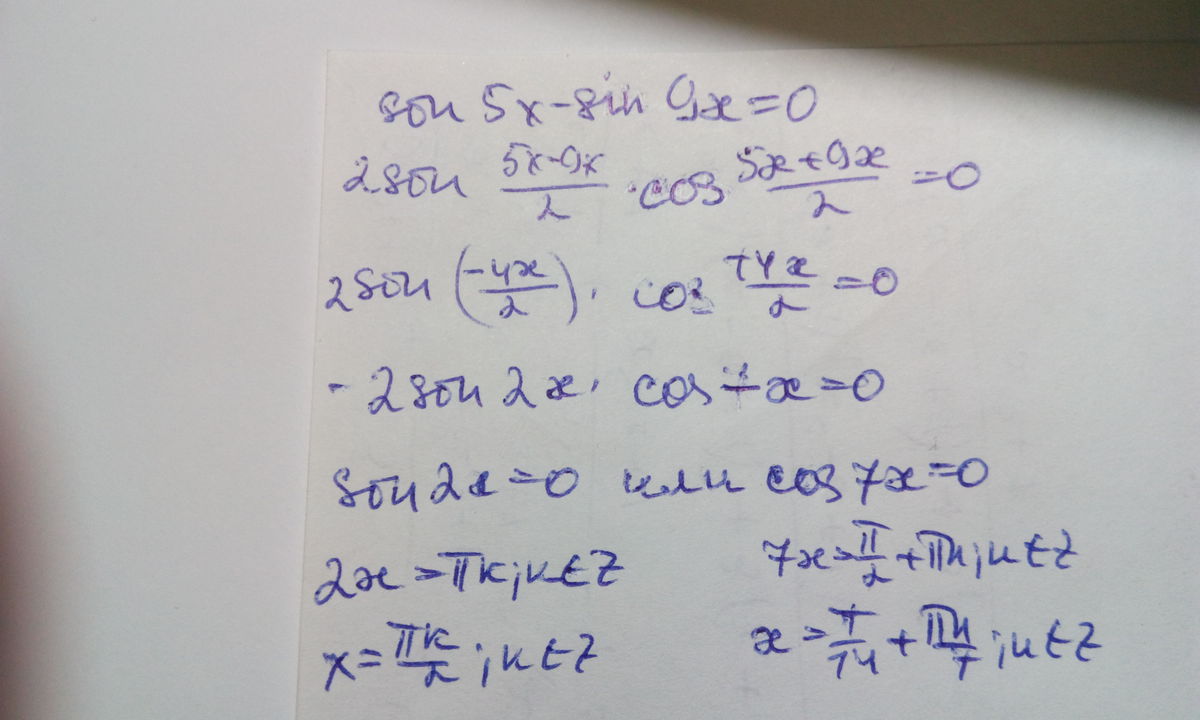 sin 5x - sin 9x = 0
2 sin (5x-9x)/2 · cos (5x+9x)/2 = 0
2 sin (-4x/2) · cos 14x/2 = 0
- 2 sin 2x · cos 7x = 0
sin 2x = 0 или cos 7x = 0
2x = πk; k∈Z 7x = π/2 + πn; n∈Z
x = πk/2; k∈Z x = π/14 + πn/7; n∈Z